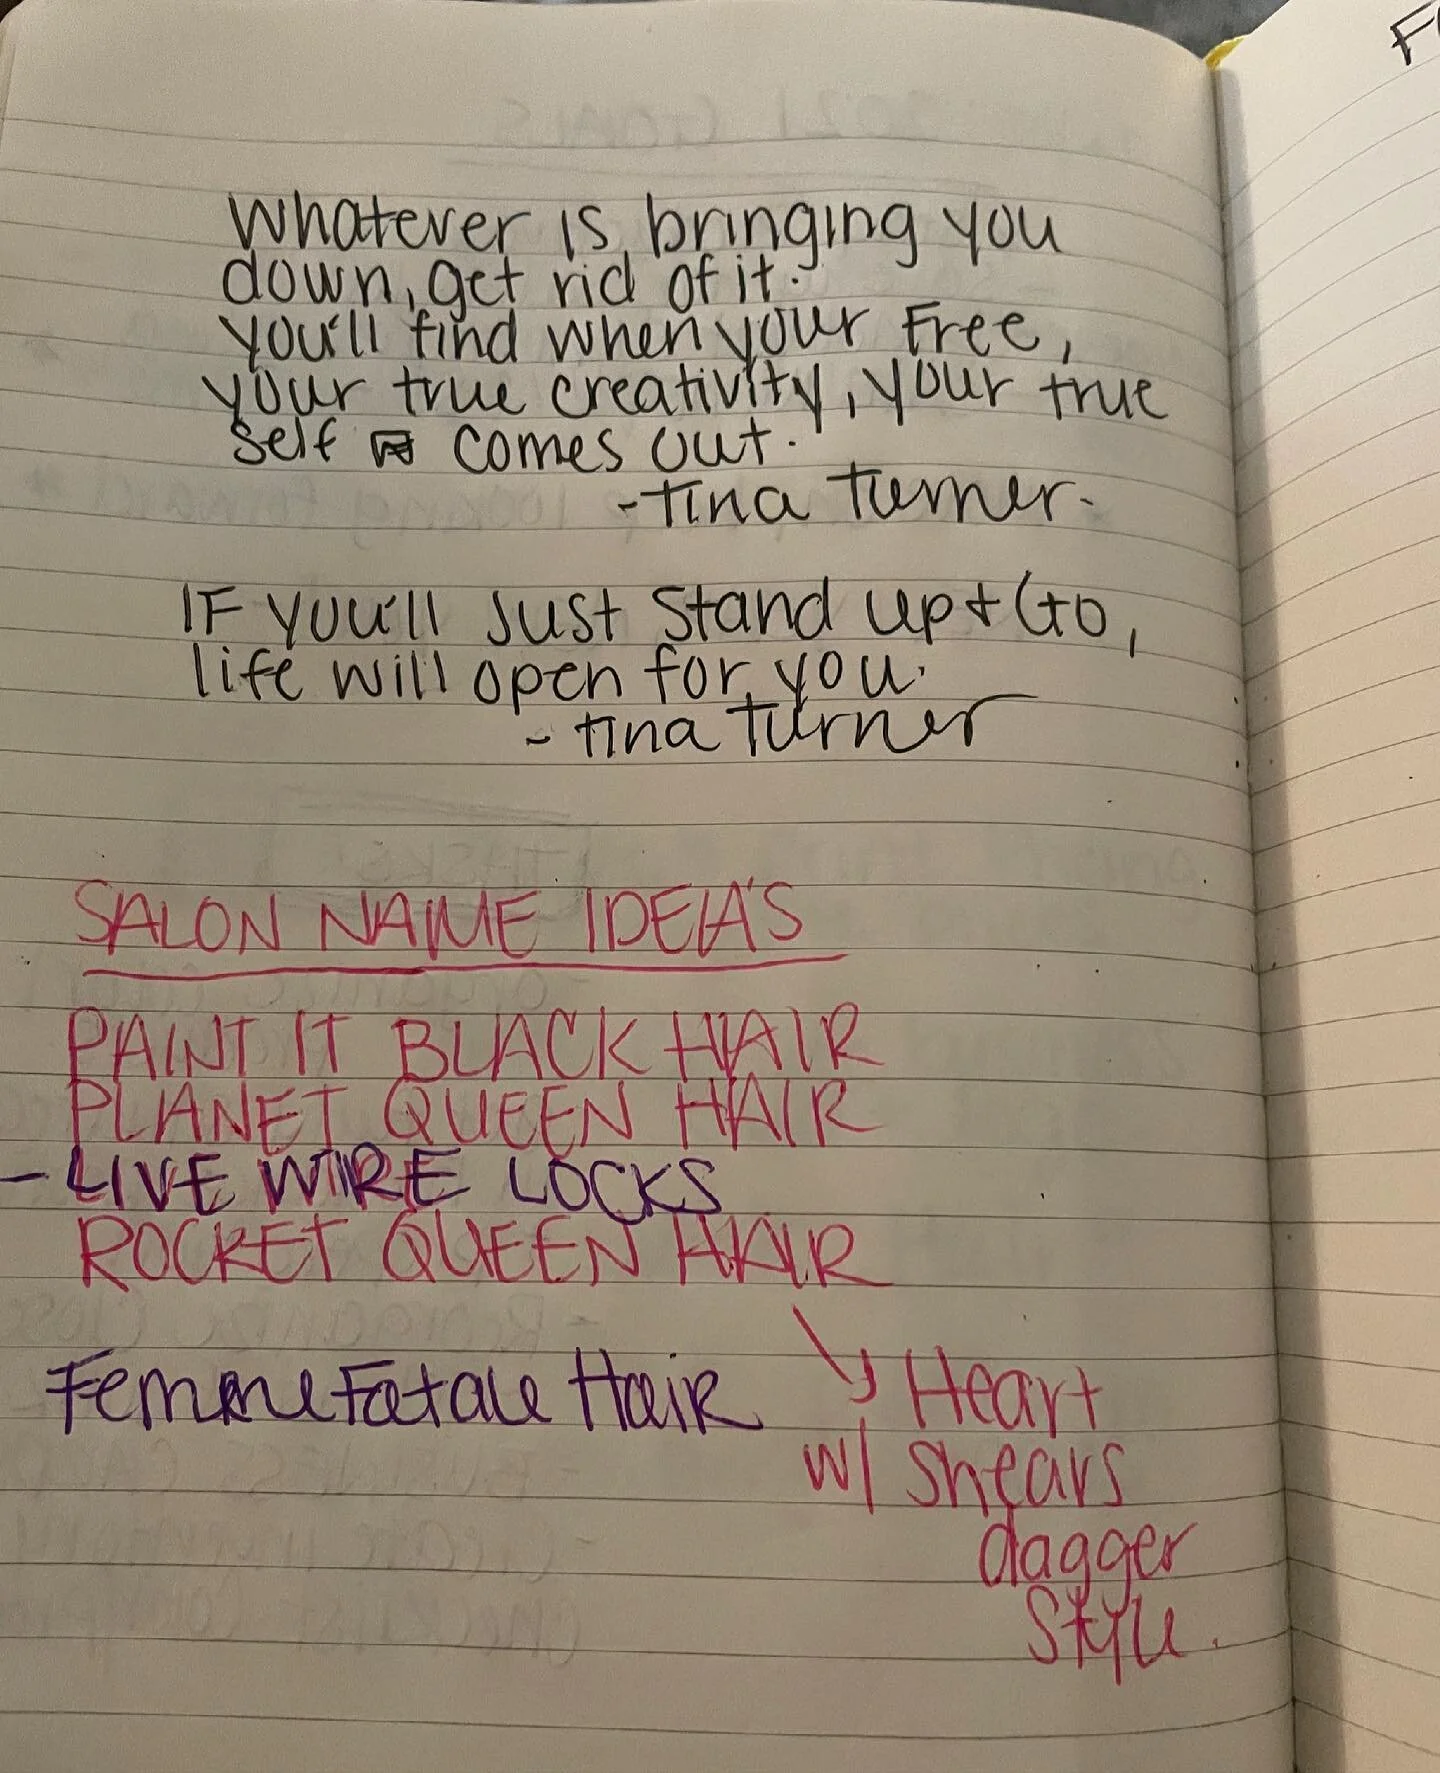 Whatever is bringing you
down, get rid of it.
you'll find when your Free,
your true creativity, your true
self comes out.
-Tina Turner.
IF you'll Just Stand up + Go,
life will open for you.
- Tina Turner
SALON NAME IDEA'S
PAINT IT BLACK HAIR
PLANET QUEEN HAIR
- LIVE WIRE LOCKS
ROCKET QUEEN HAIR
Femme Fatale Hair
Heart
w/ shears
dagger
Style.